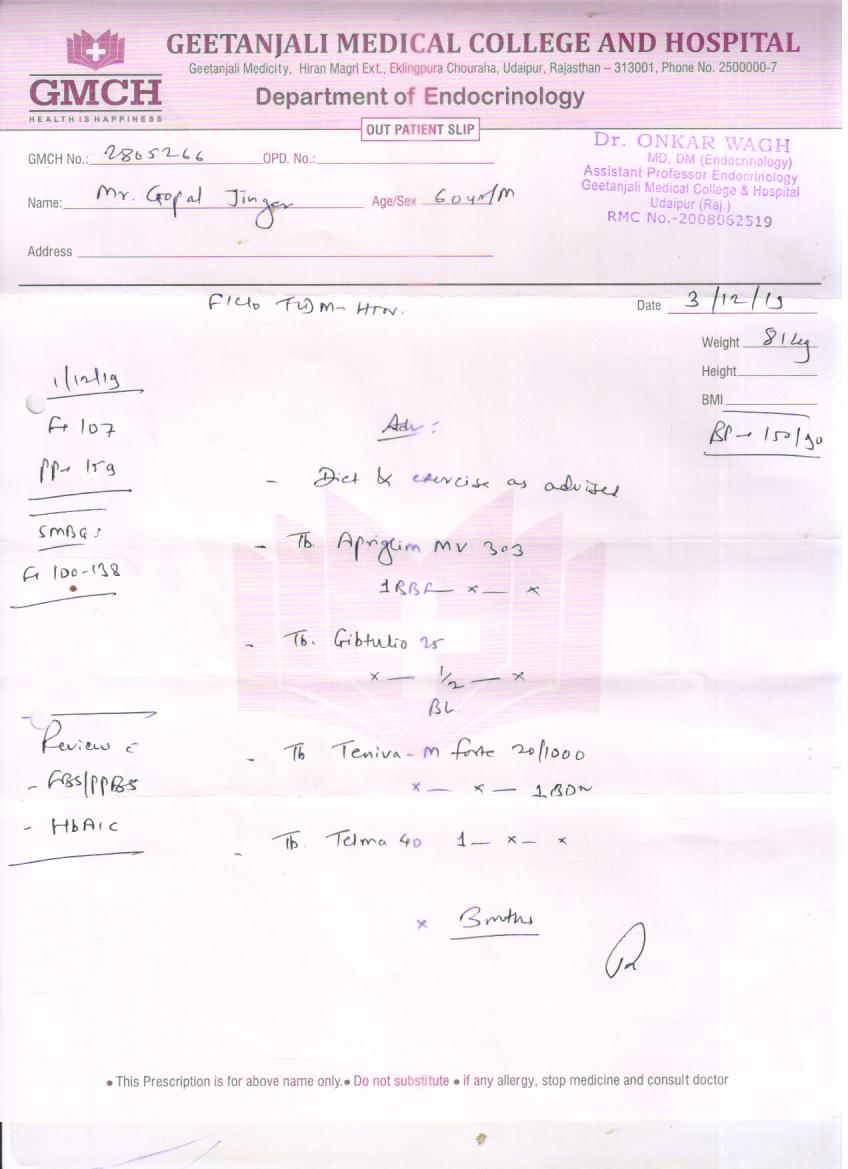 GEETANJALI MEDICAL COLLEGE AND HOSPITAL
Geetanjali Medicity, Hiran Magri Ext., Eklingpura Chouraha, Udaipur, Rajasthan – 313001, Phone No. 2500000-7
GMCH
HEALTH IS HAPPINESS
Department of Endocrinology
OUT PATIENT SLIP
Dr. ONKAR WAGH
MD, DM (Endocrinology)
Assistant Professor Endocrinology
Geetanjali Medical College & Hospital
Udaipur (Raj.)
RMC No.-2008062519
GMCH No.: 2805266 OPD. No.:
Name: Mr. Gopal Jinger Age/Sex 60yr/M
Address
F/C/o T2DM- HTN.
Date 3/12/19
Weight 81kg
Height
BMI
BP → 150/90
1/12/19
F→ 107
PP→ 159
SMBG:
F→ 100-138
Adv:
- Diet & exercise as advised
- Tb. Apriglim MV 303
1BBF — x — x
- Tb. Gibtulio 25
x — 1/2 — x
BL
- Tb Teniva-M forte 20/1000
x — x — 1BDn
- Tb. Telma 40 1 — x — x
x 3mths
Review c
- FBS/PPBS
- HbA1c
• This Prescription is for above name only. • Do not substitute • if any allergy, stop medicine and consult doctor